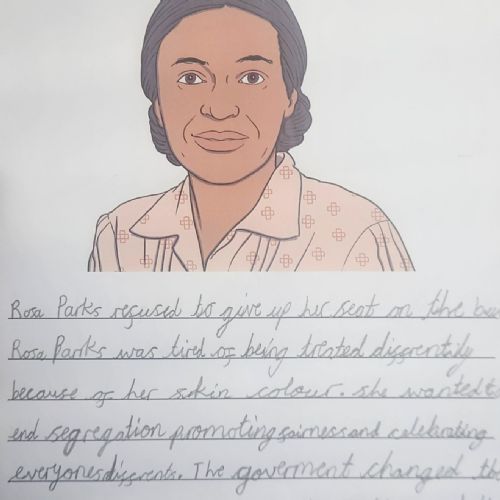 Rosa Parks refused to give up her seat on the bus
Rosa Parks was tired of being treated differentily
because of her skin colour. she wanted to
end segregation promoting fairness and celebrating
everyones differents. The goverment changed th